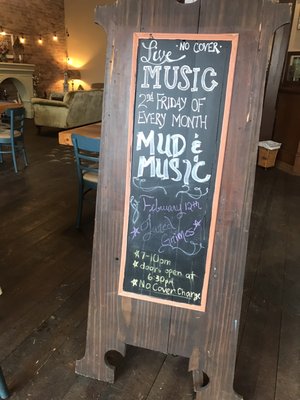 Live - NO COVER -
MUSIC
2nd FRIDAY OF
EVERY MONTH
MUD &
MUSIC
February 12th
Grimes
7-10pm
doors open at
6:30pm
No Cover Charge